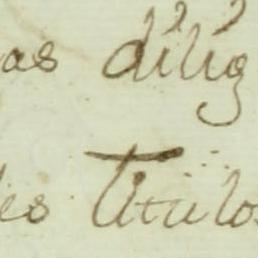 as dilig
es Titulos